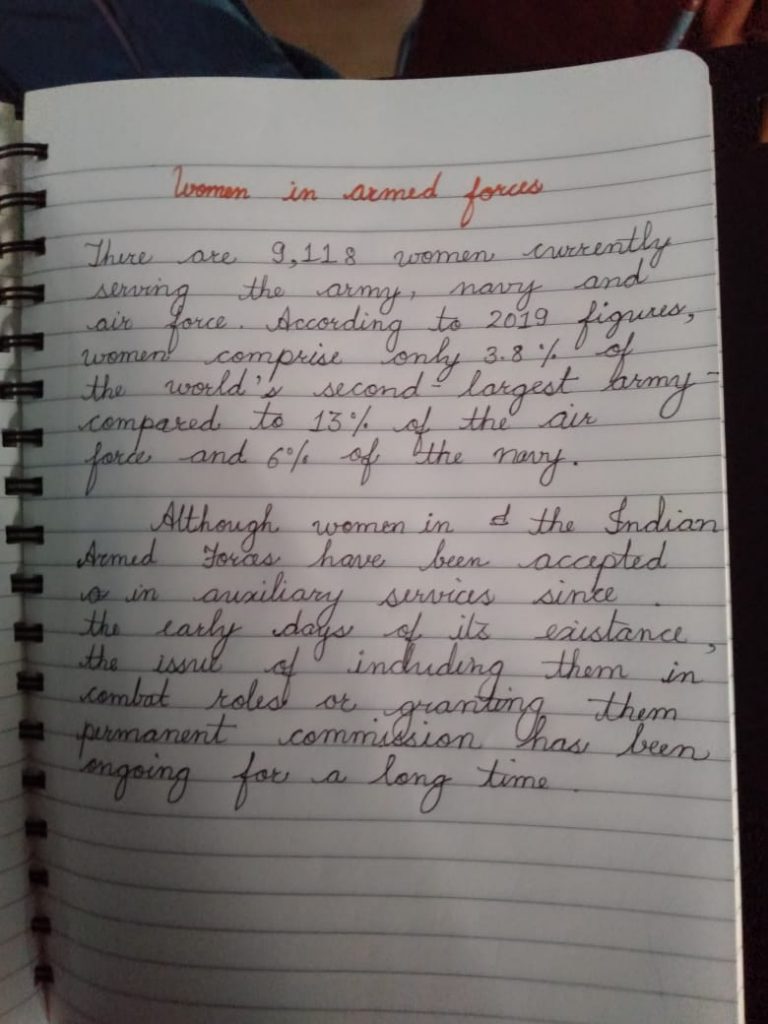 Women in armed forces
There are 9,118 women currently
serving the army, navy and
air force. According to 2019 figures,
women comprise only 3.8% of
the world's second-largest army-
compared to 13% of the air
force and 6% of the navy.
Although women in the Indian
Armed Forces have been accepted
in auxiliary services since
the early days of its existance,
the issue of including them in
combat roles or granting them
permanent commission has been
ongoing for a long time.